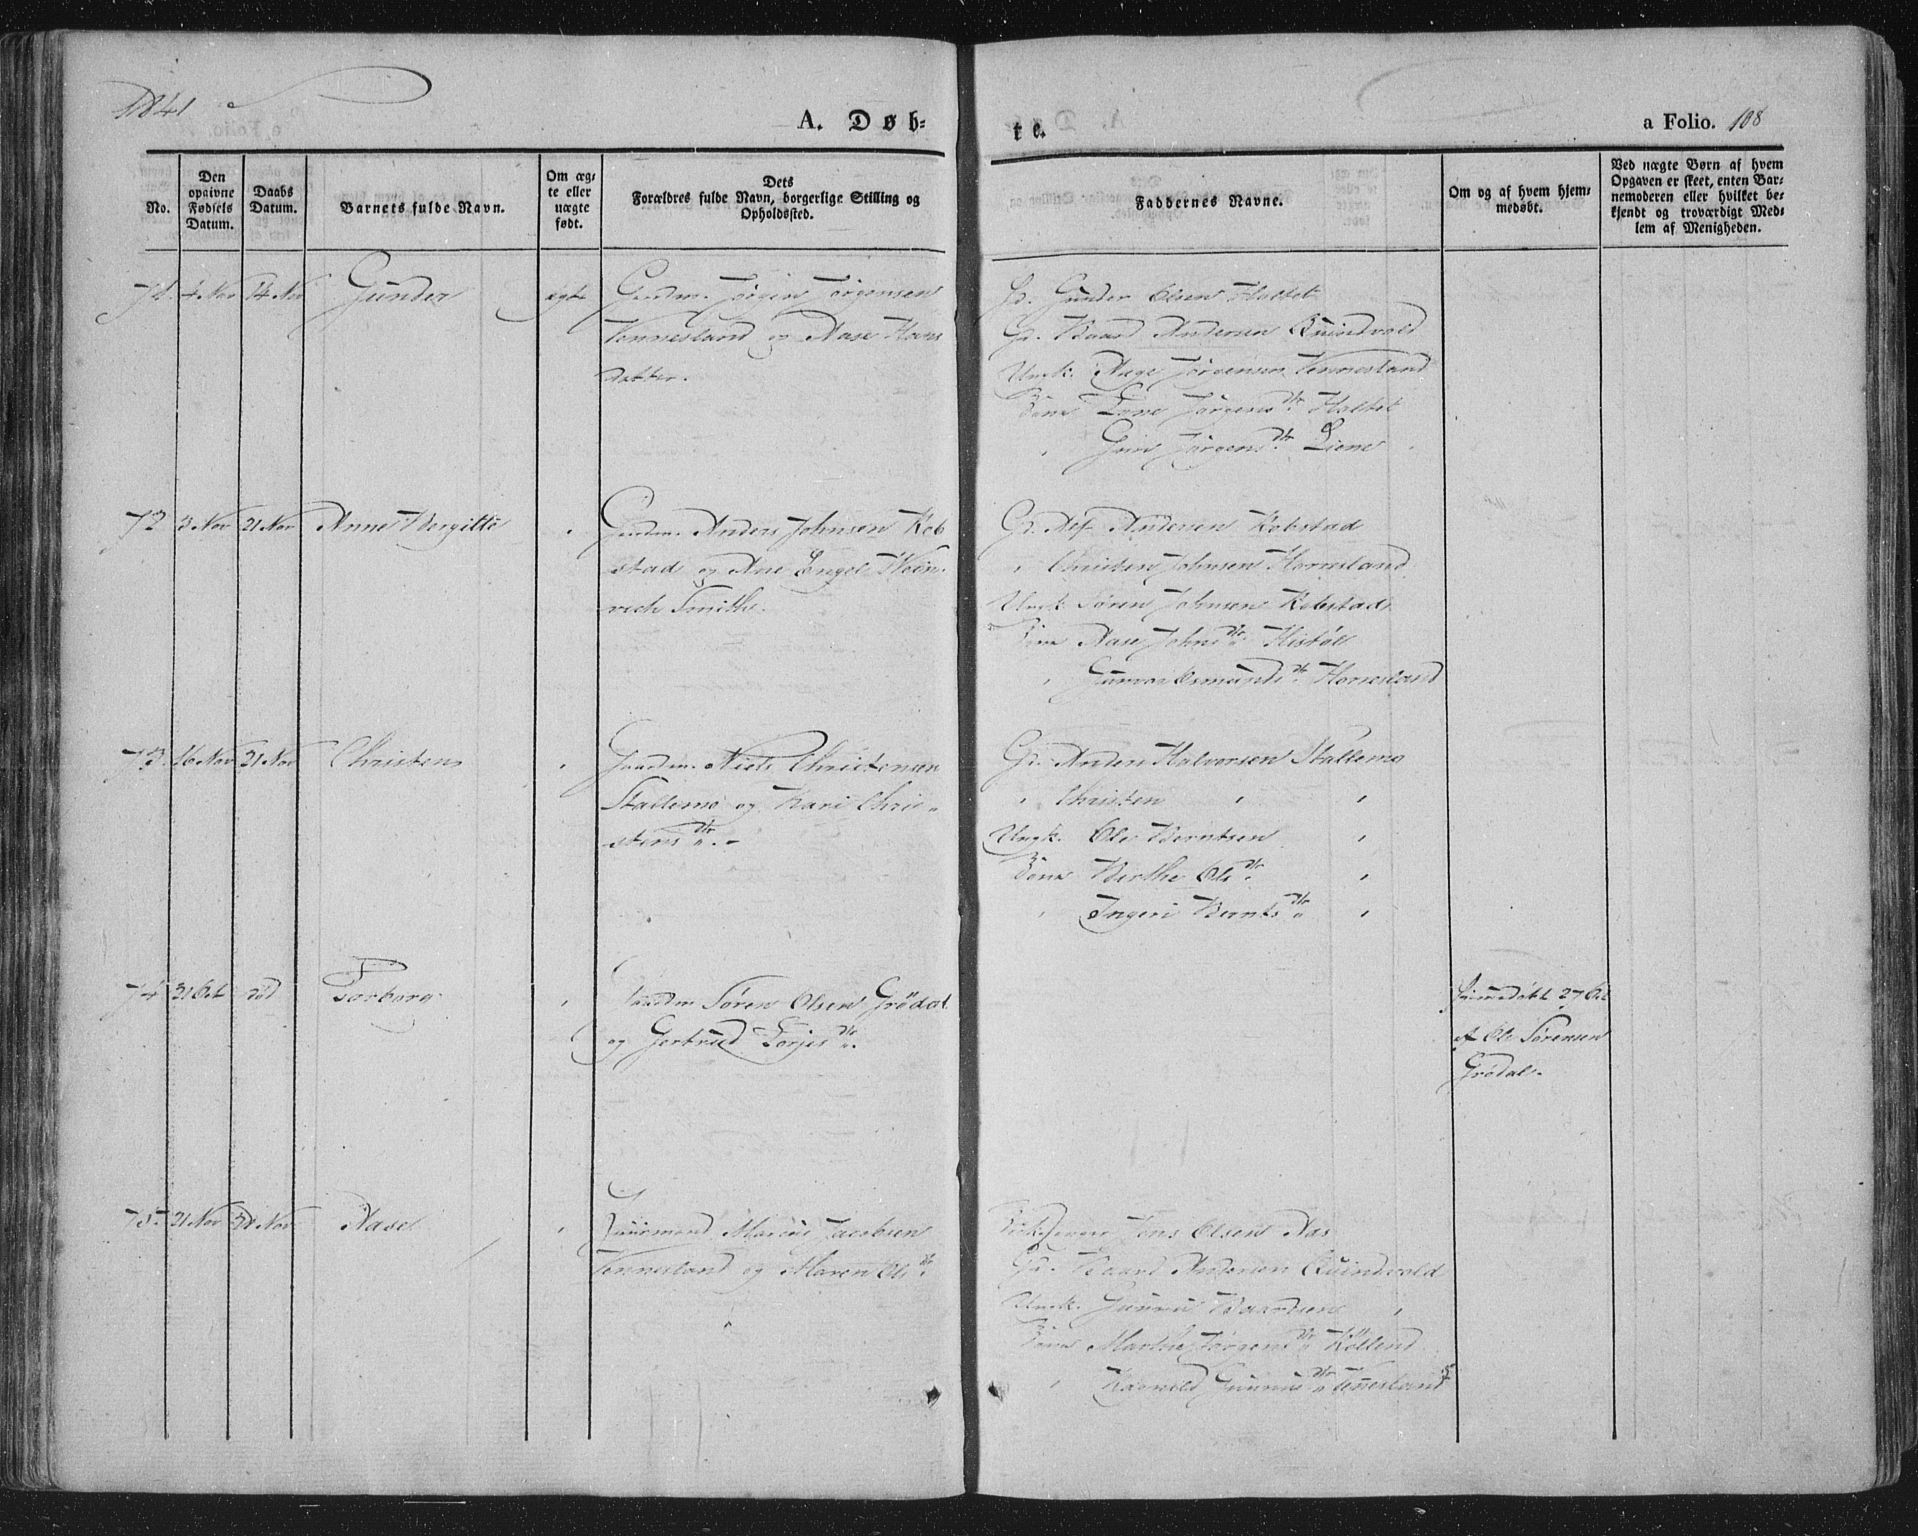 1841
A. Døb=
te.
a Folio. 108
No.
Den opgivne Fødsels Datum.
Daabs Datum.
Barnets fulde Navn.
Om ægte eller uægte født.
Dets Forældres fulde Navn, borgerlige Stilling og Opholdssted.
Faddernes Navne.
Om og af hvem hjemmedøbt.
Ved uægte Børn af hvem Opgaven er skeet, enten Barnemoderen eller hvilket bekjendt og troværdigt Medlem af Menigheden.
71. 4 Nov 14 Nov Gunder ægte Gaardm. Jørgen Jørgensen
Vennesland og Aase Hans
datter.
Gd. Gunder Olsen Haltet
Gd. Baard Andersen Quindvold
Ungk. Aage Jørgensen Vennesland
Kone Tone Jørgens Dtr Haltet
" Guri Jørgens Dtr Liene
72 3 Nov 21 Nov Anne Bergitte " Gaardm. Anders Johnsen Kob
stad og Ane Engel Wein
rich Smith.
Gd. Alf Andersen Kobstad
" Christen Johnsen Horresland
Ungk. Søren Johnsen Kobstad
Kone Aase Johns Dtr
" Osmunds Dtr Horresland
73. 16 Nov 21 Nov Christen " Gaardm. Niels Christensen
Stallemo og Kari Chri=
stens Dtr.
Gd. Anders Halvorsen Stallemo
" Christen " "
Ungk. Ole Berntsen "
Kone Berthe Ols Dtr "
" Ingeri Bernts Dtr "
74 21 Oct død Torborg " Gaardm Søren Olsen Grödal
og Gertrud Torjes Dtr.
Hjemmedøbt 27 Oct
af Ole Sørensen
Grödal.
75 21 Nov Nov Aase " Huusmand Marcus Jacobsen
Vennesland og Maren Ols Dtr
Kirkesanger Jens Olsen Aas
Gd. Baard Andersen Quindvold
Ungk. Gunnu Baardsen "
Kone Marthe Jørgens Dtr
" Ragnild Gunnus Dtr Vennesland